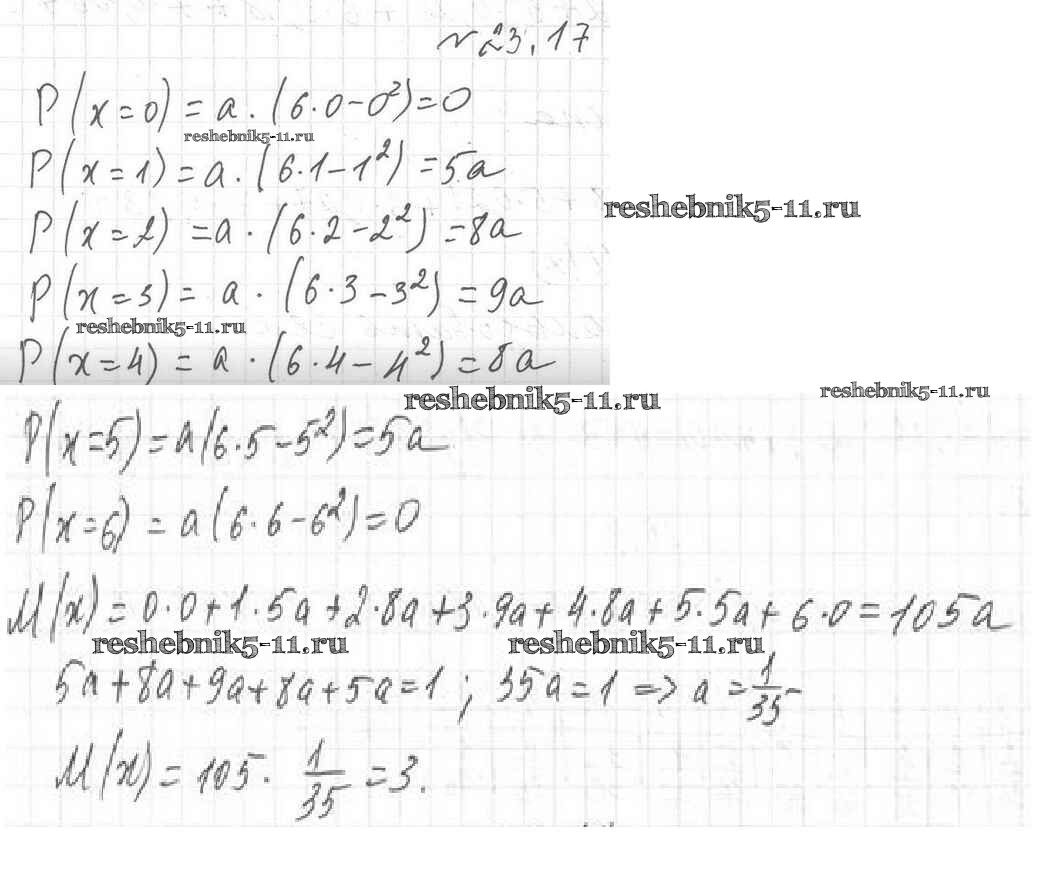 №23.17
P(x=0)=a·(6·0-0²)=0
reshebnik5-11.ru
P(x=1)=a·(6·1-1²)=5a
reshebnik5-11.ru
P(x=2)=a·(6·2-2²)=8a
P(x=3)=a·(6·3-3²)=9a
reshebnik5-11.ru
P(x=4)=a·(6·4-4²)=8a
reshebnik5-11.ru
reshebnik5-11.ru
P(x=5)=a(6·5-5²)=5a
P(x=6)=a(6·6-6²)=0
M(x)=0·0+1·5a+2·8a+3·9a+4·8a+5·5a+6·0=105a
reshebnik5-11.ru reshebnik5-11.ru
5a+8a+9a+8a+5a=1; 35a=1 => a=1/35
M(x)=105·1/35=3.